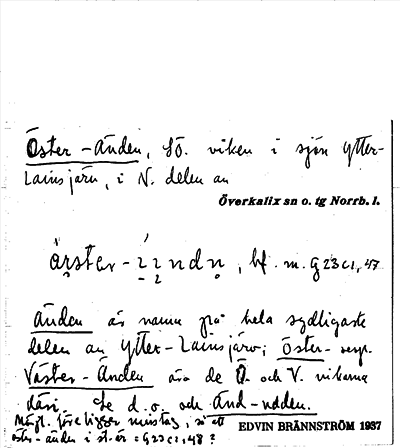 Öster-Änden, SÖ. viken i sjön Ytter-
Lainsjärv, i N. delen av
Överkalix sn o. tg Norrb. l.
bf. m. G23C1, 47
Änden är namn på hela sydligaste
delen av Ytter-Lainsjärv; Öster- resp.
Väster-Änden äro de Ö. och V. vikarna
däri. Se d.o. och Änd-udden.
Möjl. föreligger misstag, så att
öster-änden i st. är = G23C1, 48?
EDVIN BRÄNNSTRÖM 1937